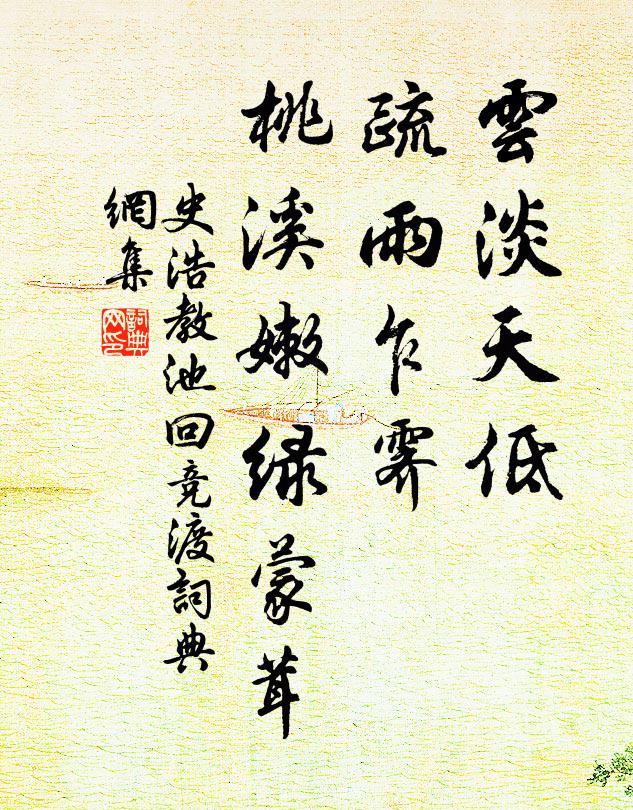 雲淡天低
疏雨乍霽
桃溪嫩綠蒙茸
史浩教池回竞渡詞典
網集
詞典
网印